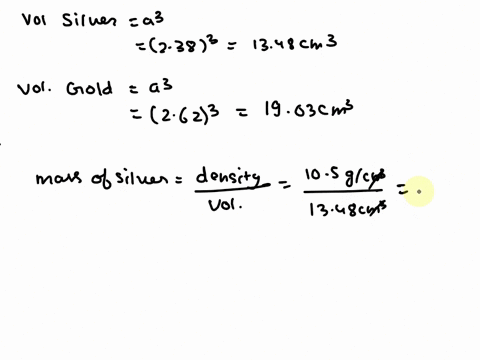 Vol Silver = a³
= (2.38)³ = 13.48 cm³
Vol. Gold = a³
= (2.62)³ = 19.63 cm³
mass of silver = density / Vol. = 10.5 g/cm³ / 13.48 cm³ =